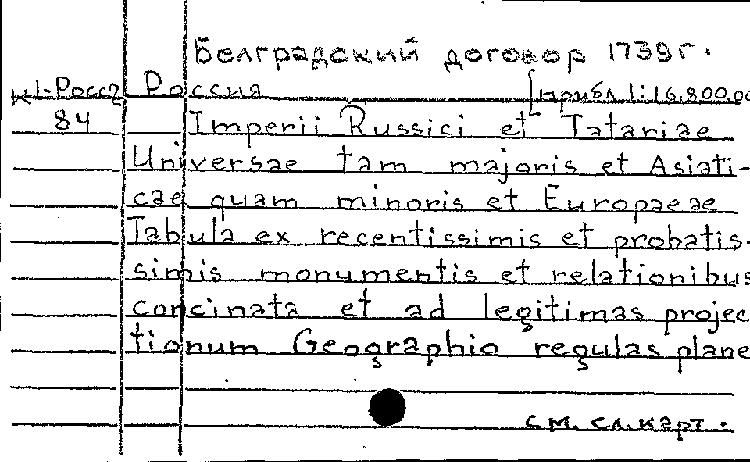 Белградский договор 1739г.
К1-Росс2 Россия [прибл 1:16.800.00
84 Imperii Russici et Tatariae
Universae tam majoris et Asiati-
cae quam minoris et Europaeae
Tabula ex recentissimis et probatis-
simis monumentis et relationibus
concinata et ad legitimas projec
tionum Geographio regulas plane
см. сл. карт.